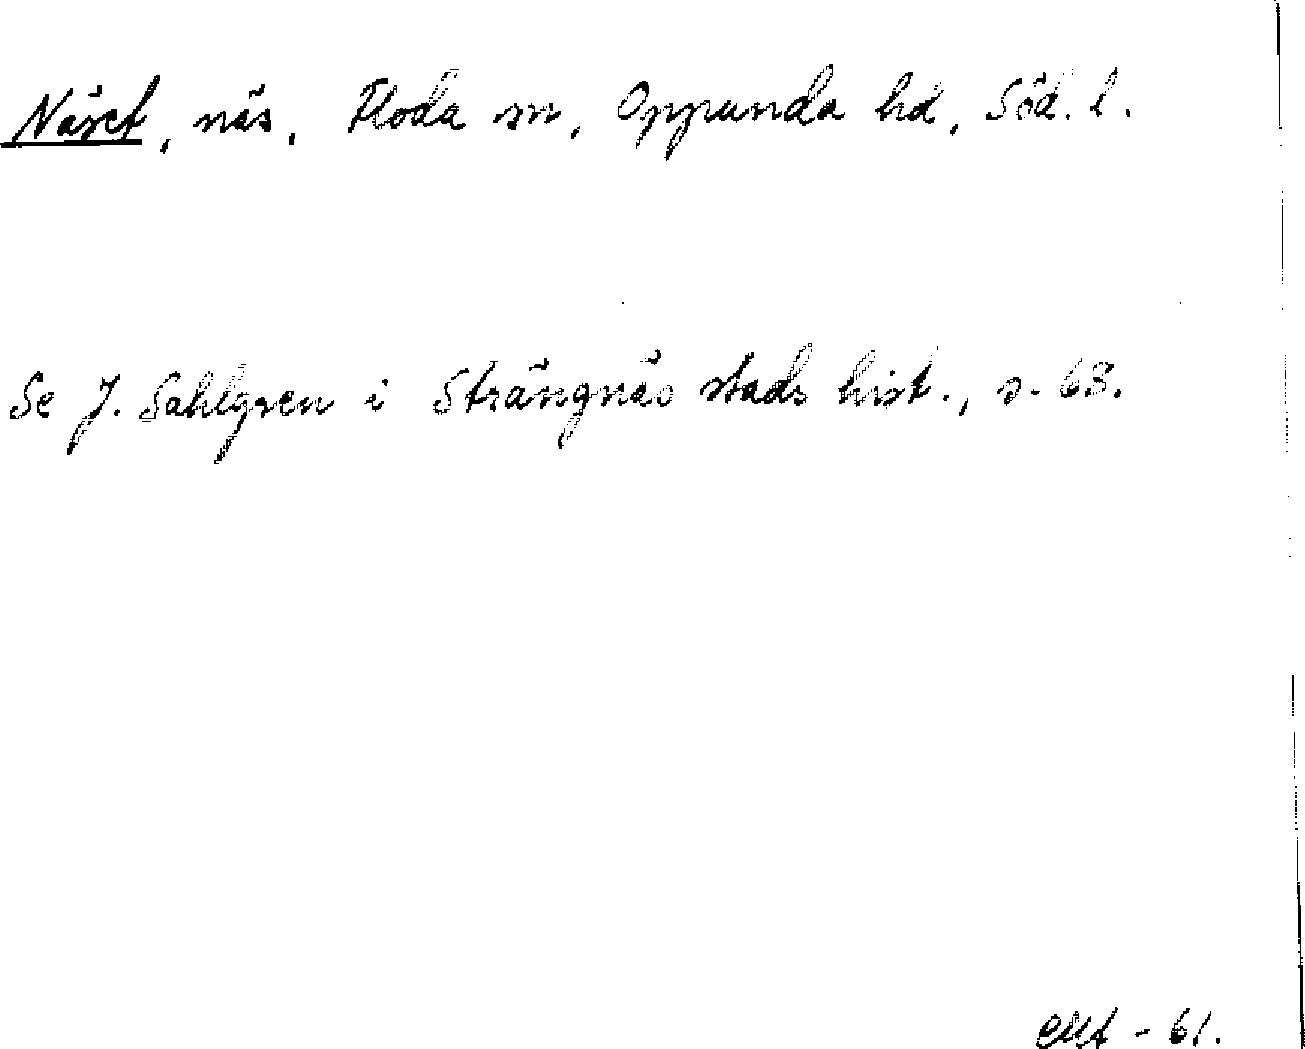 Näset, näs, Floda sn, Oppunda hd, Söd. l.
Se J. Sahlgren i Strängnäs stads hist., s. 63.
- 61.